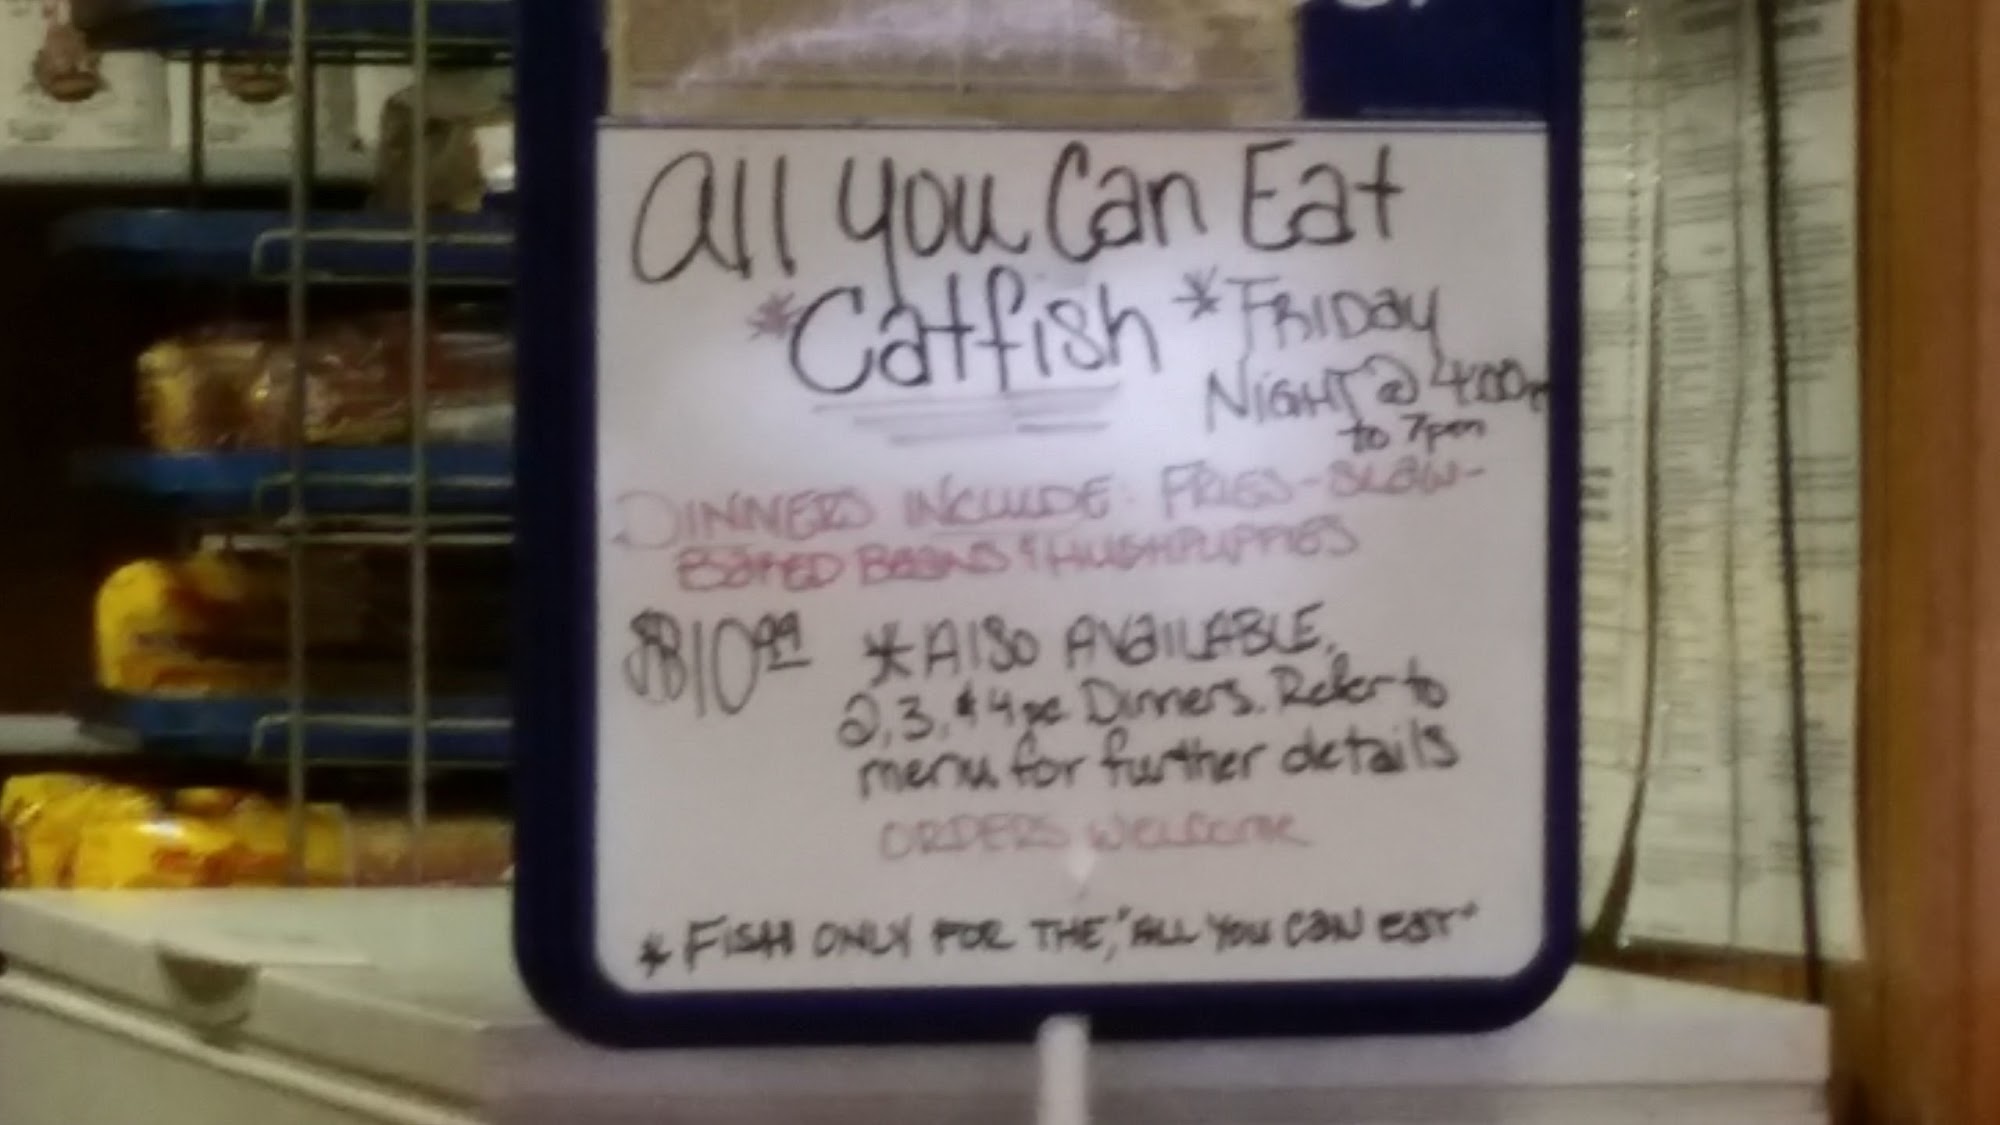 all you Can Eat
*Catfish* FRIDay
NIGHT @ 4:00pm
to 7pm
DINNERS INCLUDE. FRIES-SLAW-
BAKED BEANS & HUSHPUPPIES
$10.99 *Also AVaILABLE,
2,3, & 4pc Dinners. Refer to
menu for further details
ORDERS Welcome
* FISH ONLY FOR THE, "ALL YOU CaN EaT"